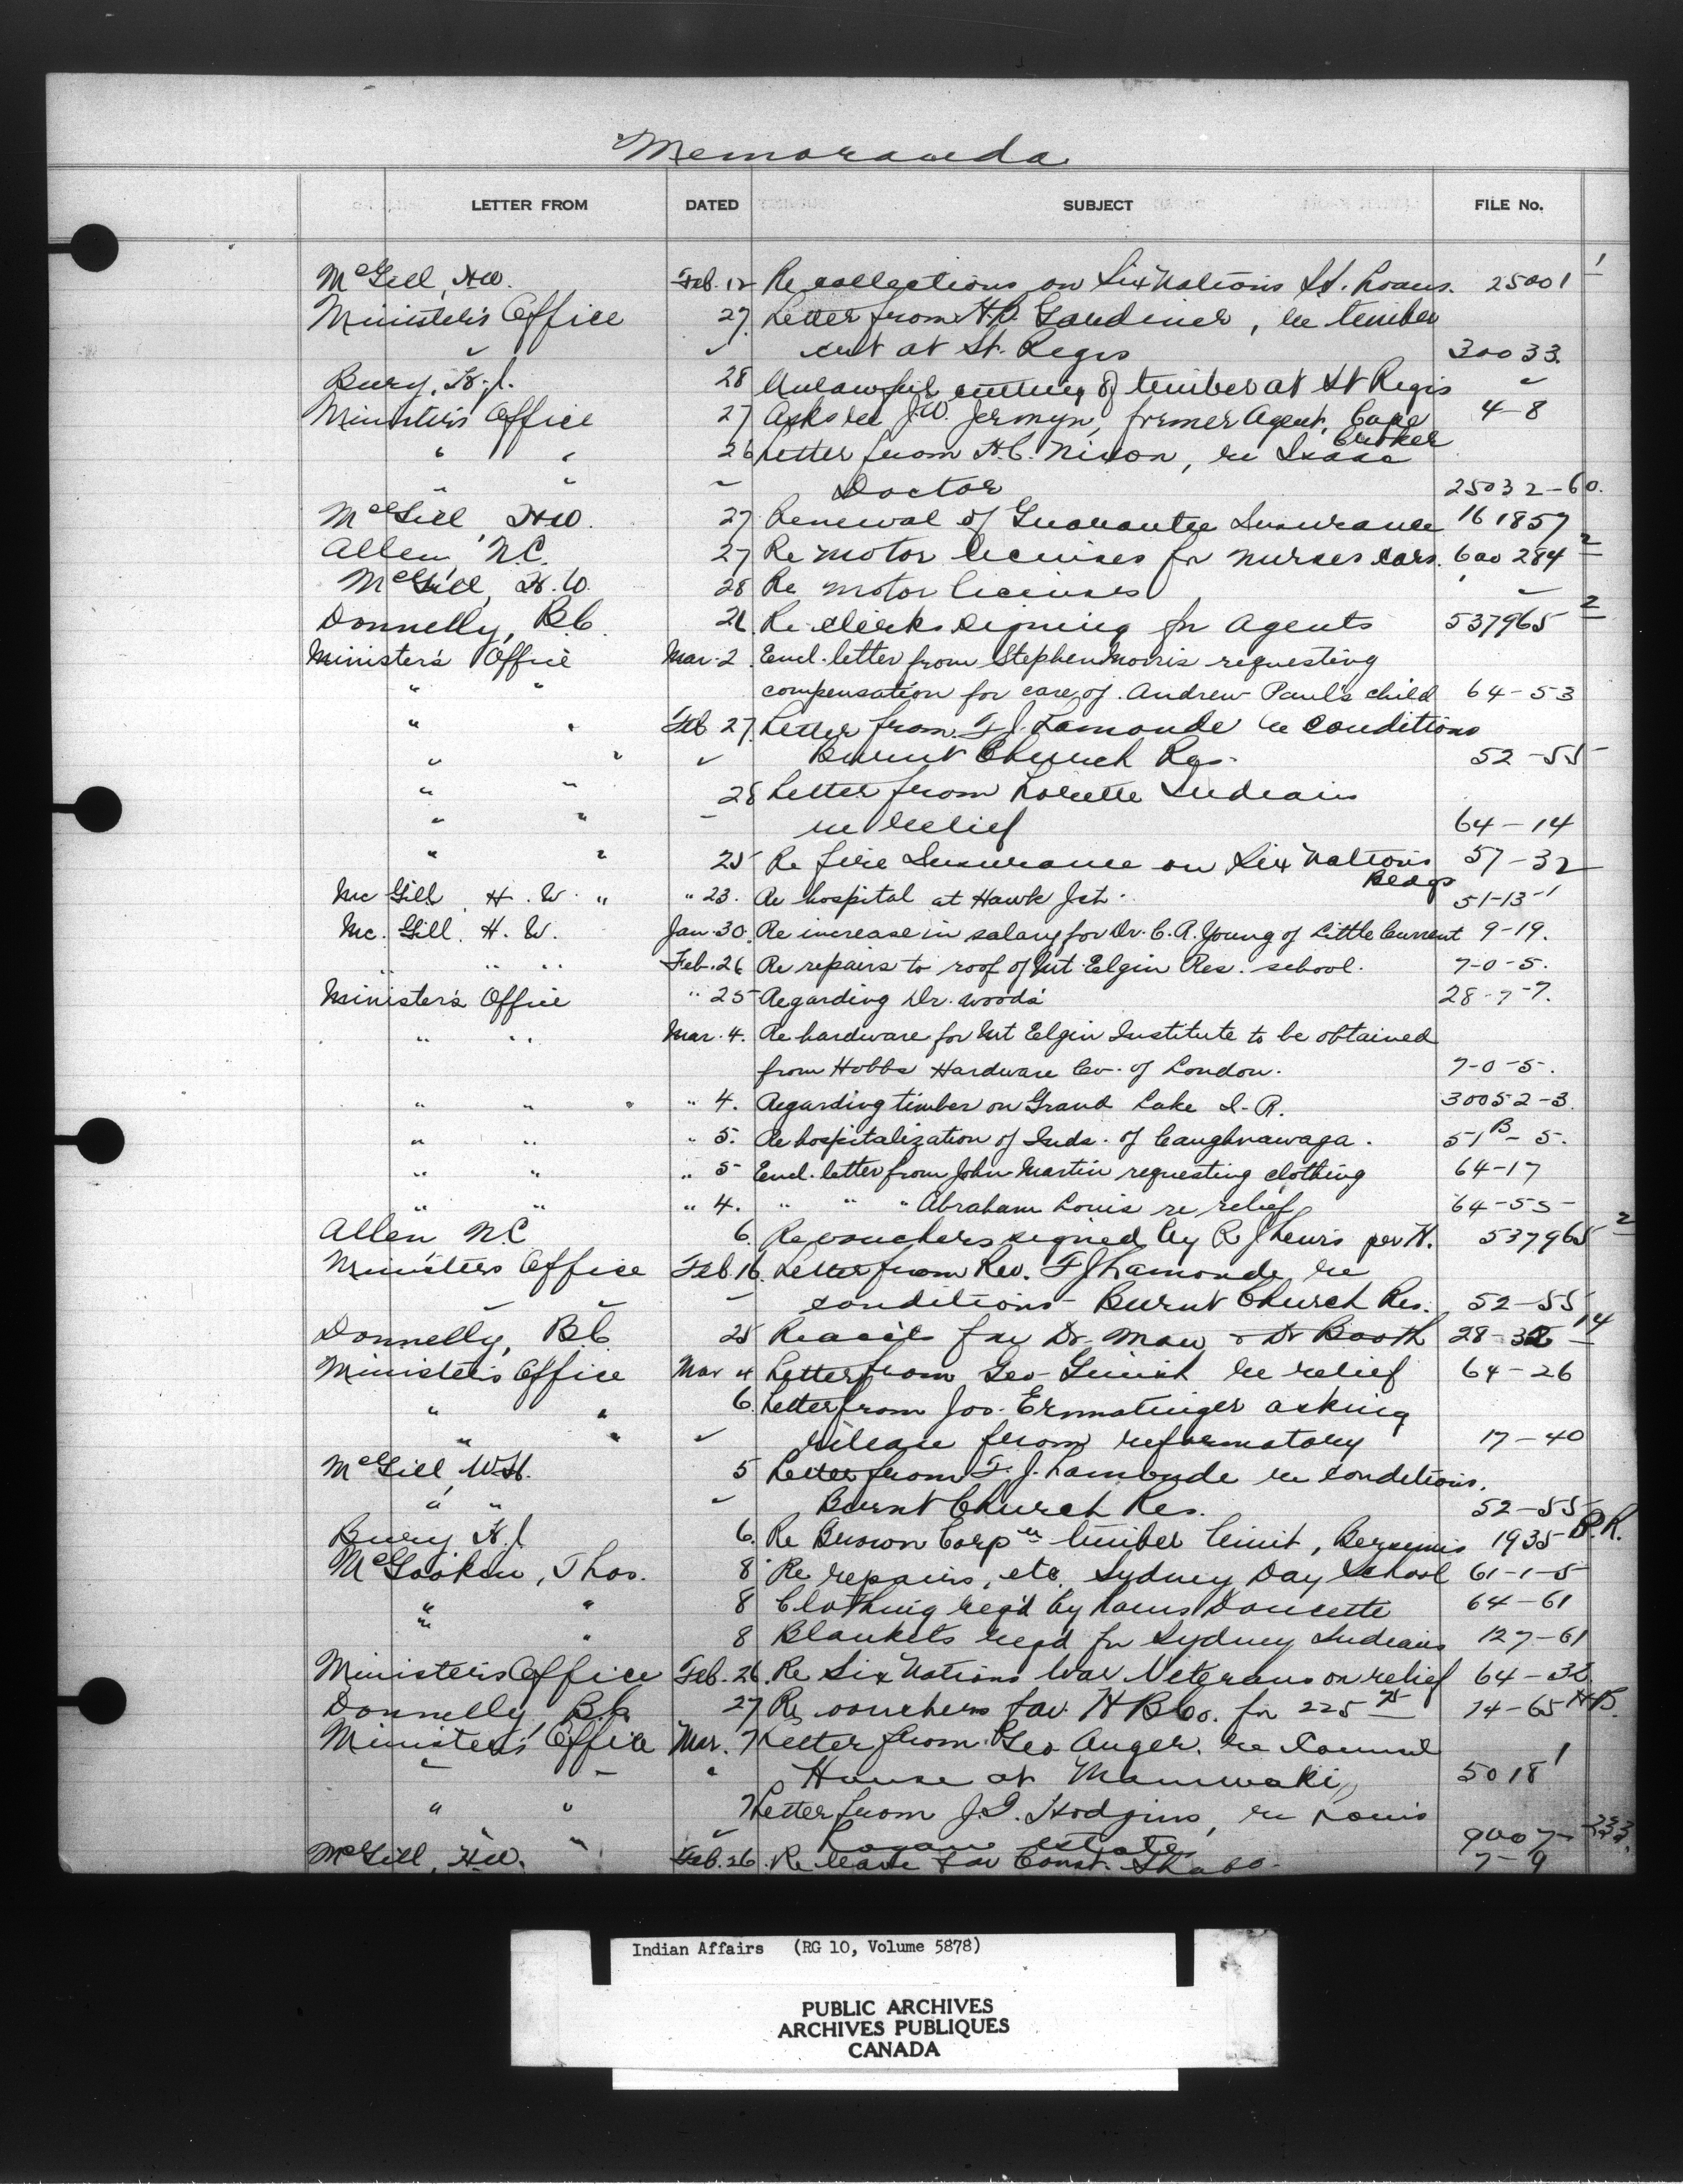 "Memoranda
LETTER FROM DATED SUBJECT FILE No.
McGill, H.W. Feb. 12 Re collections on Six Nations St. Loans. 25001 1
Minister's Office 27 Letter from H.P. Gardiner, re timber
" " cut at St. Regis 30033.
Bury, H.J. 28 Unlawful cutting of timber at St Regis "
Minister's Office 27 Asks re J.W. Jermyn, former Agent, Cape Croker 4-8
" " 26 Letter from H.C. Nixon, re Isaac
" " " Doctor 25032-60.
McGill, H.W. 27 Renewal of Guarantee Insurance 161857
Allen, N.C. 27 Re motor licenses for nurses cars. 600284 2
McGill, H.W. 28 Re motor licenses "
Donnelly, B.C. 26. Re clerks signing for Agents 537965 2
Minister's Office Mar. 2. Encl. letter from Stephen Morris requesting
" " compensation for care of Andrew Paul's child 64-53
" " Feb 27. Letter from F.J. Lamonde re conditions
" " " Burnt Church Res. 52-55
" " 28 Letter from Lorette Indians
" " " re relief 64-14
" " 25 Re fire Insurance on Six Nations Bldgs 57-32
Mc Gill H. W. " " 23. Re hospital at Hawk Jct. 51-13-1
Mc. Gill. H. W. Jan. 30. Re increase in salary for Dr. C.A. Young of Little Current 9-19.
" " " Feb. 26 Re repairs to roof of Mt Elgin Res. school. 7-0-5.
Minister's Office " 25 Regarding Dr. Woods 28-7-7.
" " Mar. 4. Re hardware for Mt Elgin Institute to be obtained
from Hobbs Hardware Co. of London. 7-0-5.
" " " " 4. Regarding timber on Grand Lake I.R. 30052-3.
" " " 5. Re hospitalization of Inds. of Caughnawaga. 51B-5.
" " " 5 Encl. letter from John Martin requesting clothing 64-17
" " " 4. " " " Abraham Louis re relief 64-55
Allen N.C 6. Re vouchers signed by R J Lewis per H. 537965 2
Minister's Office Feb. 16. Letter from Rev. F J Lamonde re
" " " conditions Burnt Church Res. 52-55
Donnelly, B.C 25 Re accts fav Dr. Maw & Dr Booth 28-32 14
Minister's Office Mar 4 Letter from Geo re relief 64-26
" " 6. Letter from Jos. Ermatinger asking
" " " release from reformatory 17-40
McGill, W.H. 5 Letter from F.J. Lamonde re conditions.
" " " Burnt Church Res. 52-55
Bury H.J 6. Re Brown Corp'n timber limit, Bersimis 1935 B.R.
McGookin, Thos. 8 Re repairs, etc. Sydney Day School 61-1-5
" " 8 Clothing req'd by Louis Doucette 64-61
" " 8 Blankets req'd for Sydney Indians 127-61
Minister's Office Feb. 26. Re Six Nations War Veterans on relief 64-32
Donnelly B.C. 27 Re vouchers fav. H B Co. for 225 14-65 H.B.
Minister's Office Mar. 7 Letter from Geo Auger. re Council
" " " House at Maniwaki 5018 1
" " 7 Letter from J.G. Hodgins, re Louis
" " Logan estate 9007 233
McGill, H.W. Feb. 26. Re lease fav Const. 7-9
Indian Affairs (RG 10, Volume 5878)
PUBLIC ARCHIVES
ARCHIVES PUBLIQUES
CANADA